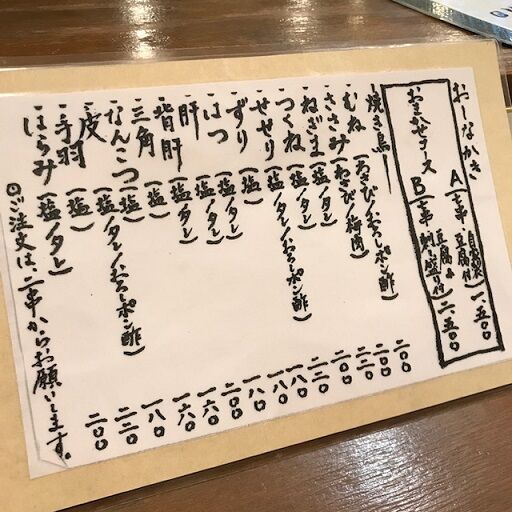 おしながき
おまかせコース A (七串・自家製豆腐付) 一、五〇〇
B (七串・豆腐+刺し盛り付) 二、五〇〇
-焼き鳥-
・むね (わさび/おろしポン酢) 二〇〇
・ささみ (わさび/梅肉) 二〇〇
・ねぎま (塩/タレ) 二三〇
・つくね (塩/タレ/おろしポン酢) 二〇〇
・せせり (塩/タレ) 二三〇
・ずり (塩) 一八〇
・はつ (塩/タレ) 一八〇
・肝 (塩/タレ) 一八〇
・背肝 (塩/タレ) 二〇〇
・三角 (塩) 一六〇
・なんこつ (塩) 一六〇
・皮 (塩/タレ/おろしポン酢) 一八〇
・手羽 (塩) 二二〇
・はらみ (塩/タレ) 二〇〇
◎ご注文は、二串からお願いします。